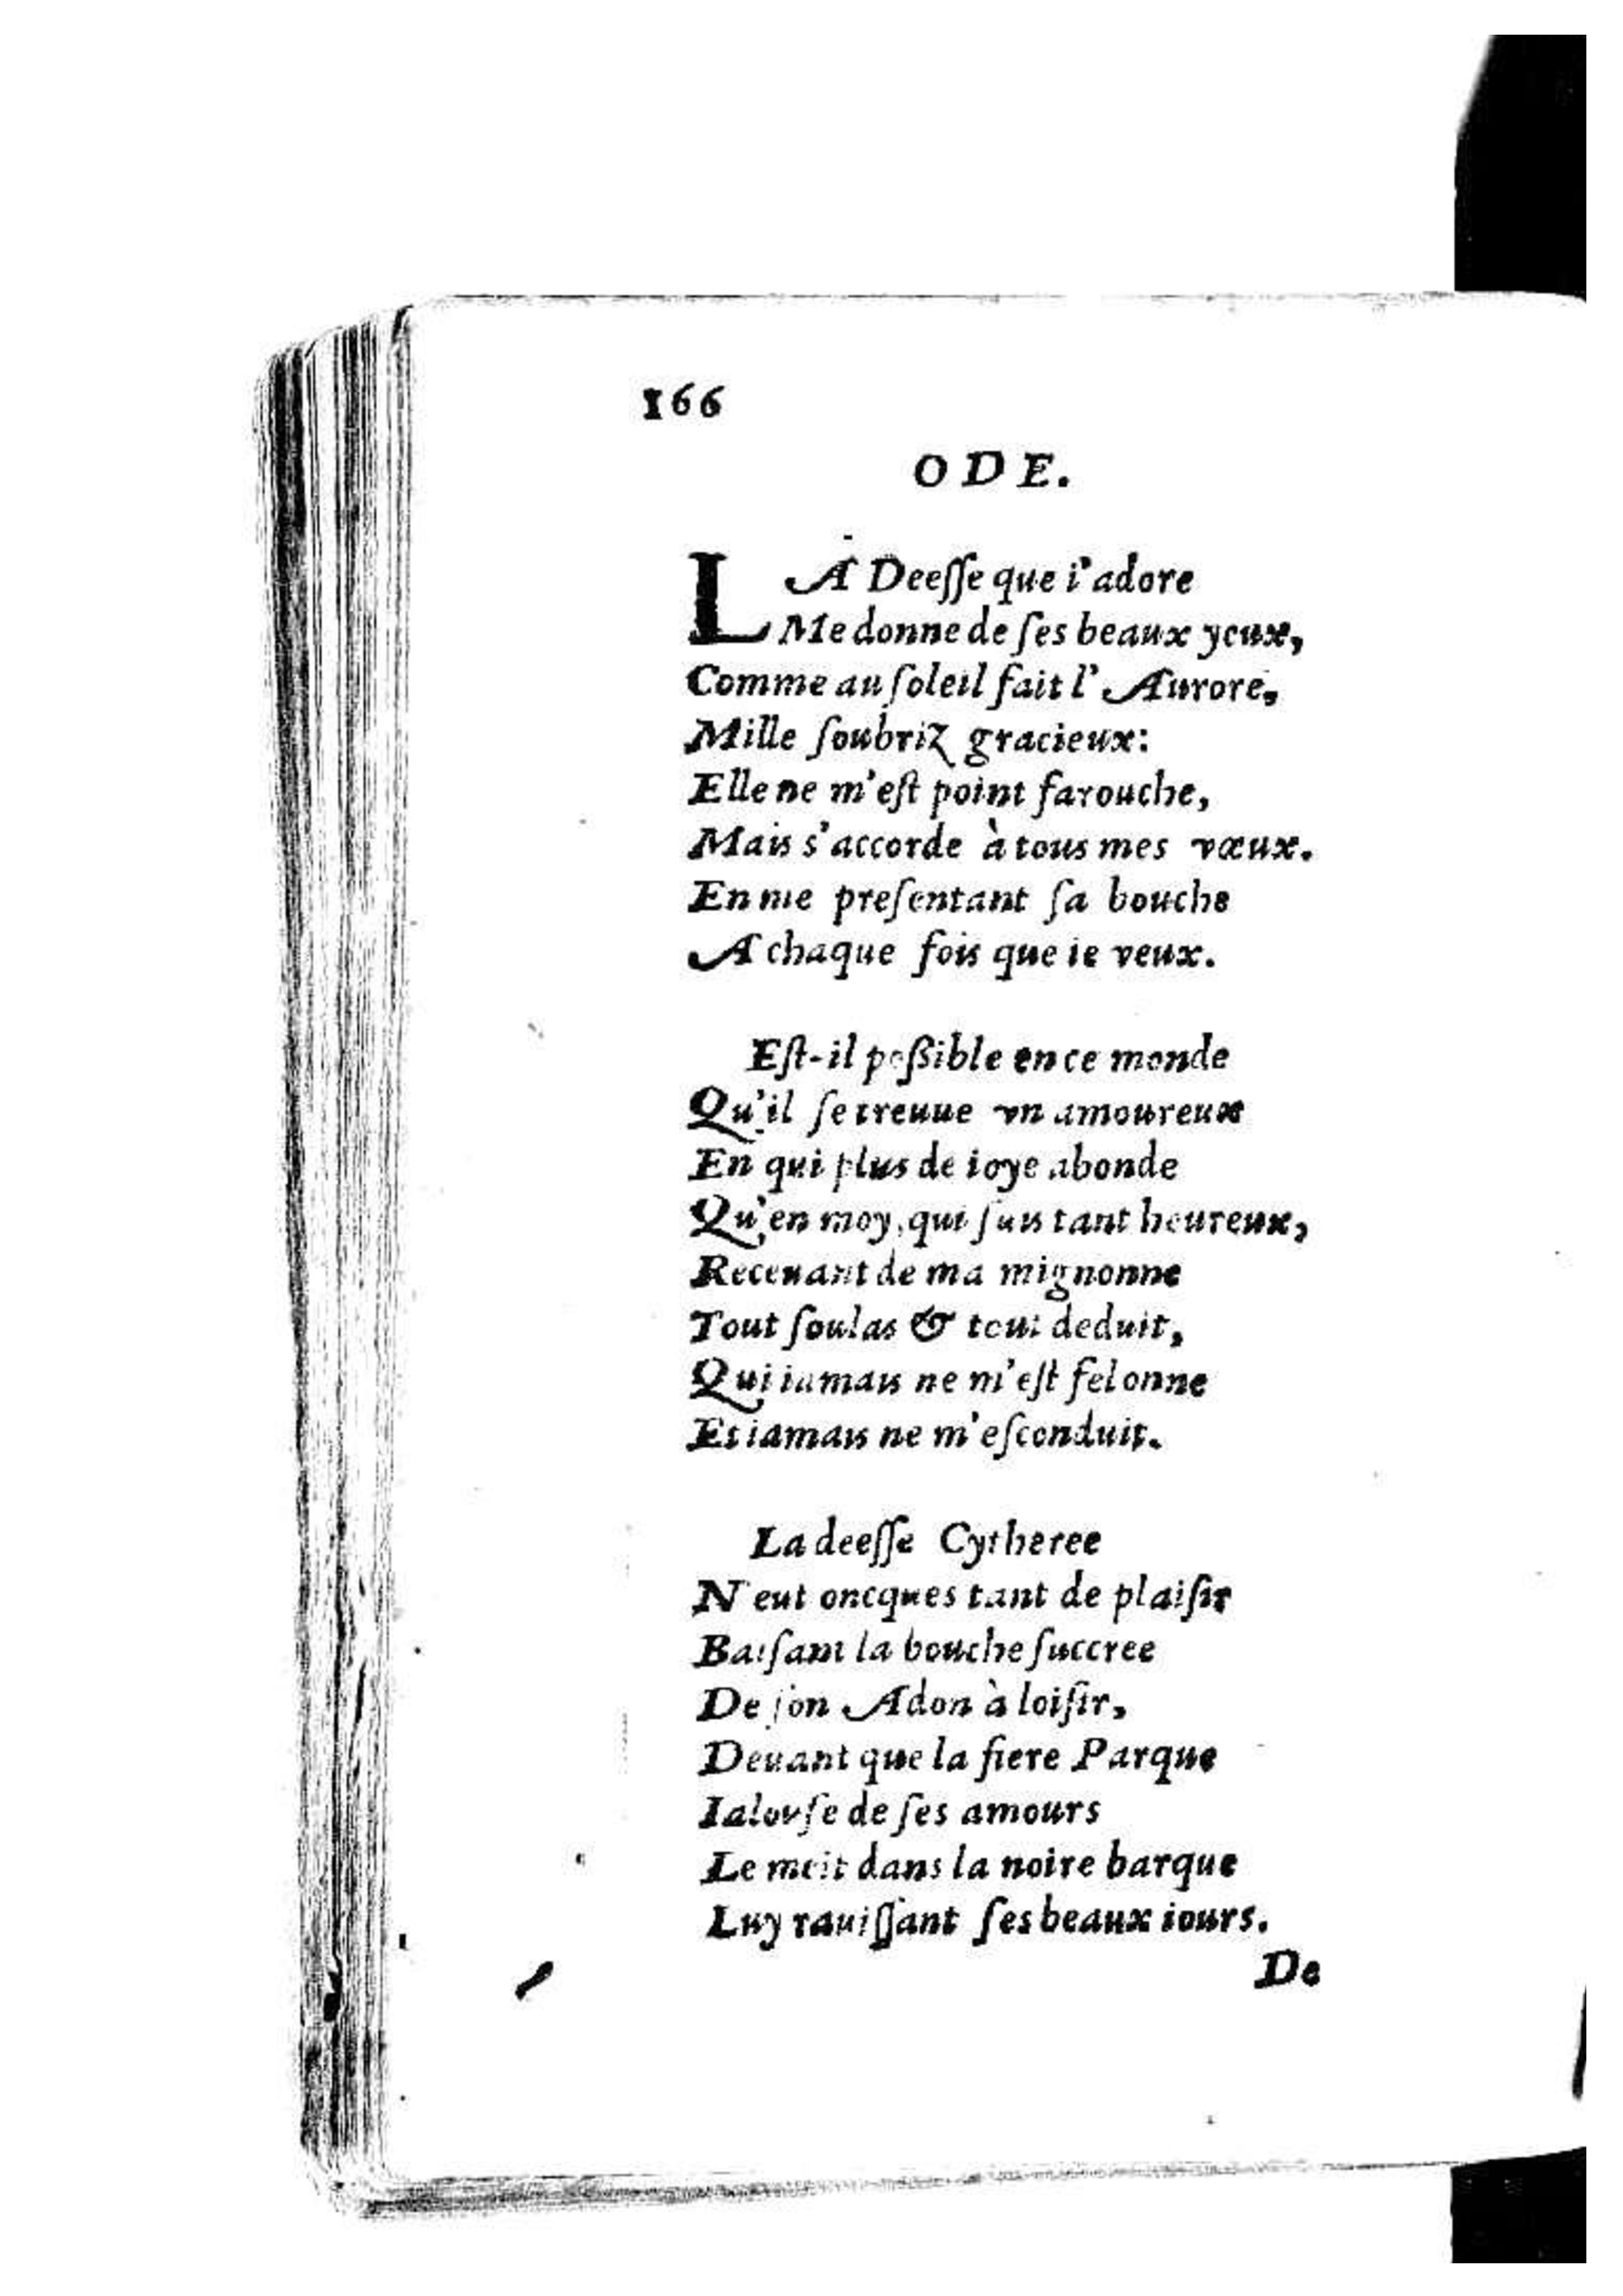 166
ODE.
LA Deeſſe que i'adore
Me donne de ſes beaux yeux,
Comme au ſoleil fait l'Aurore,
Mille ſoubriz gracieux:
Elle ne m'eſt point farouche,
Mais s'accorde à tous mes vœux.
En me preſentant ſa bouche
A chaque fois que ie veux.
Eſt-il poßible en ce monde
Qu'il ſe treuue vn amoureux
En qui plus de ioye abonde
Qu'en moy, qui ſuis tant heureux,
Receuant de ma mignonne
Tout ſoulas & tout deduit,
Qui iamais ne m'eſt felonne
Et iamais ne m'eſconduit.
La deeſſe Cytheree
N'eut oncques tant de plaiſir
Baiſant la bouche ſuccree
De ſon Adon à loiſir,
Deuant que la fiere Parque
Ialouſe de ſes amours
Le meit dans la noire barque
Luy rauiſſant ſes beaux iours.
De